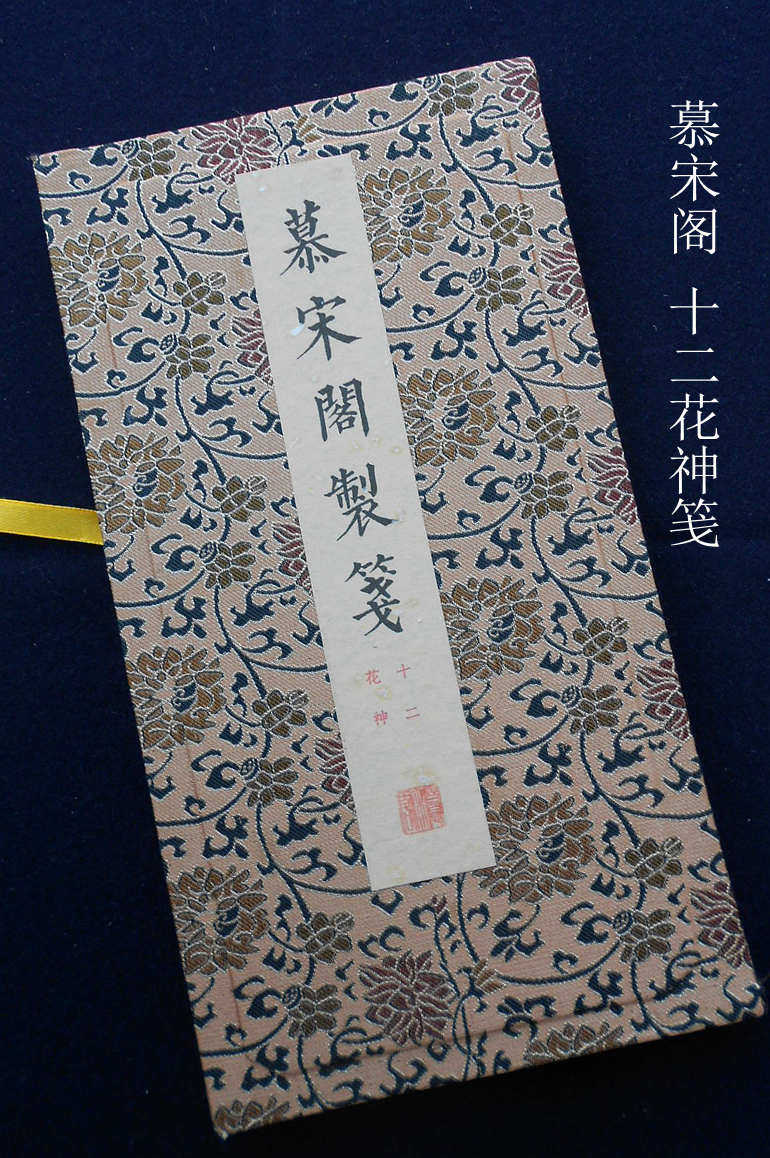 慕宋阁 十二花神笺
慕宋閣製箋
十二
花神